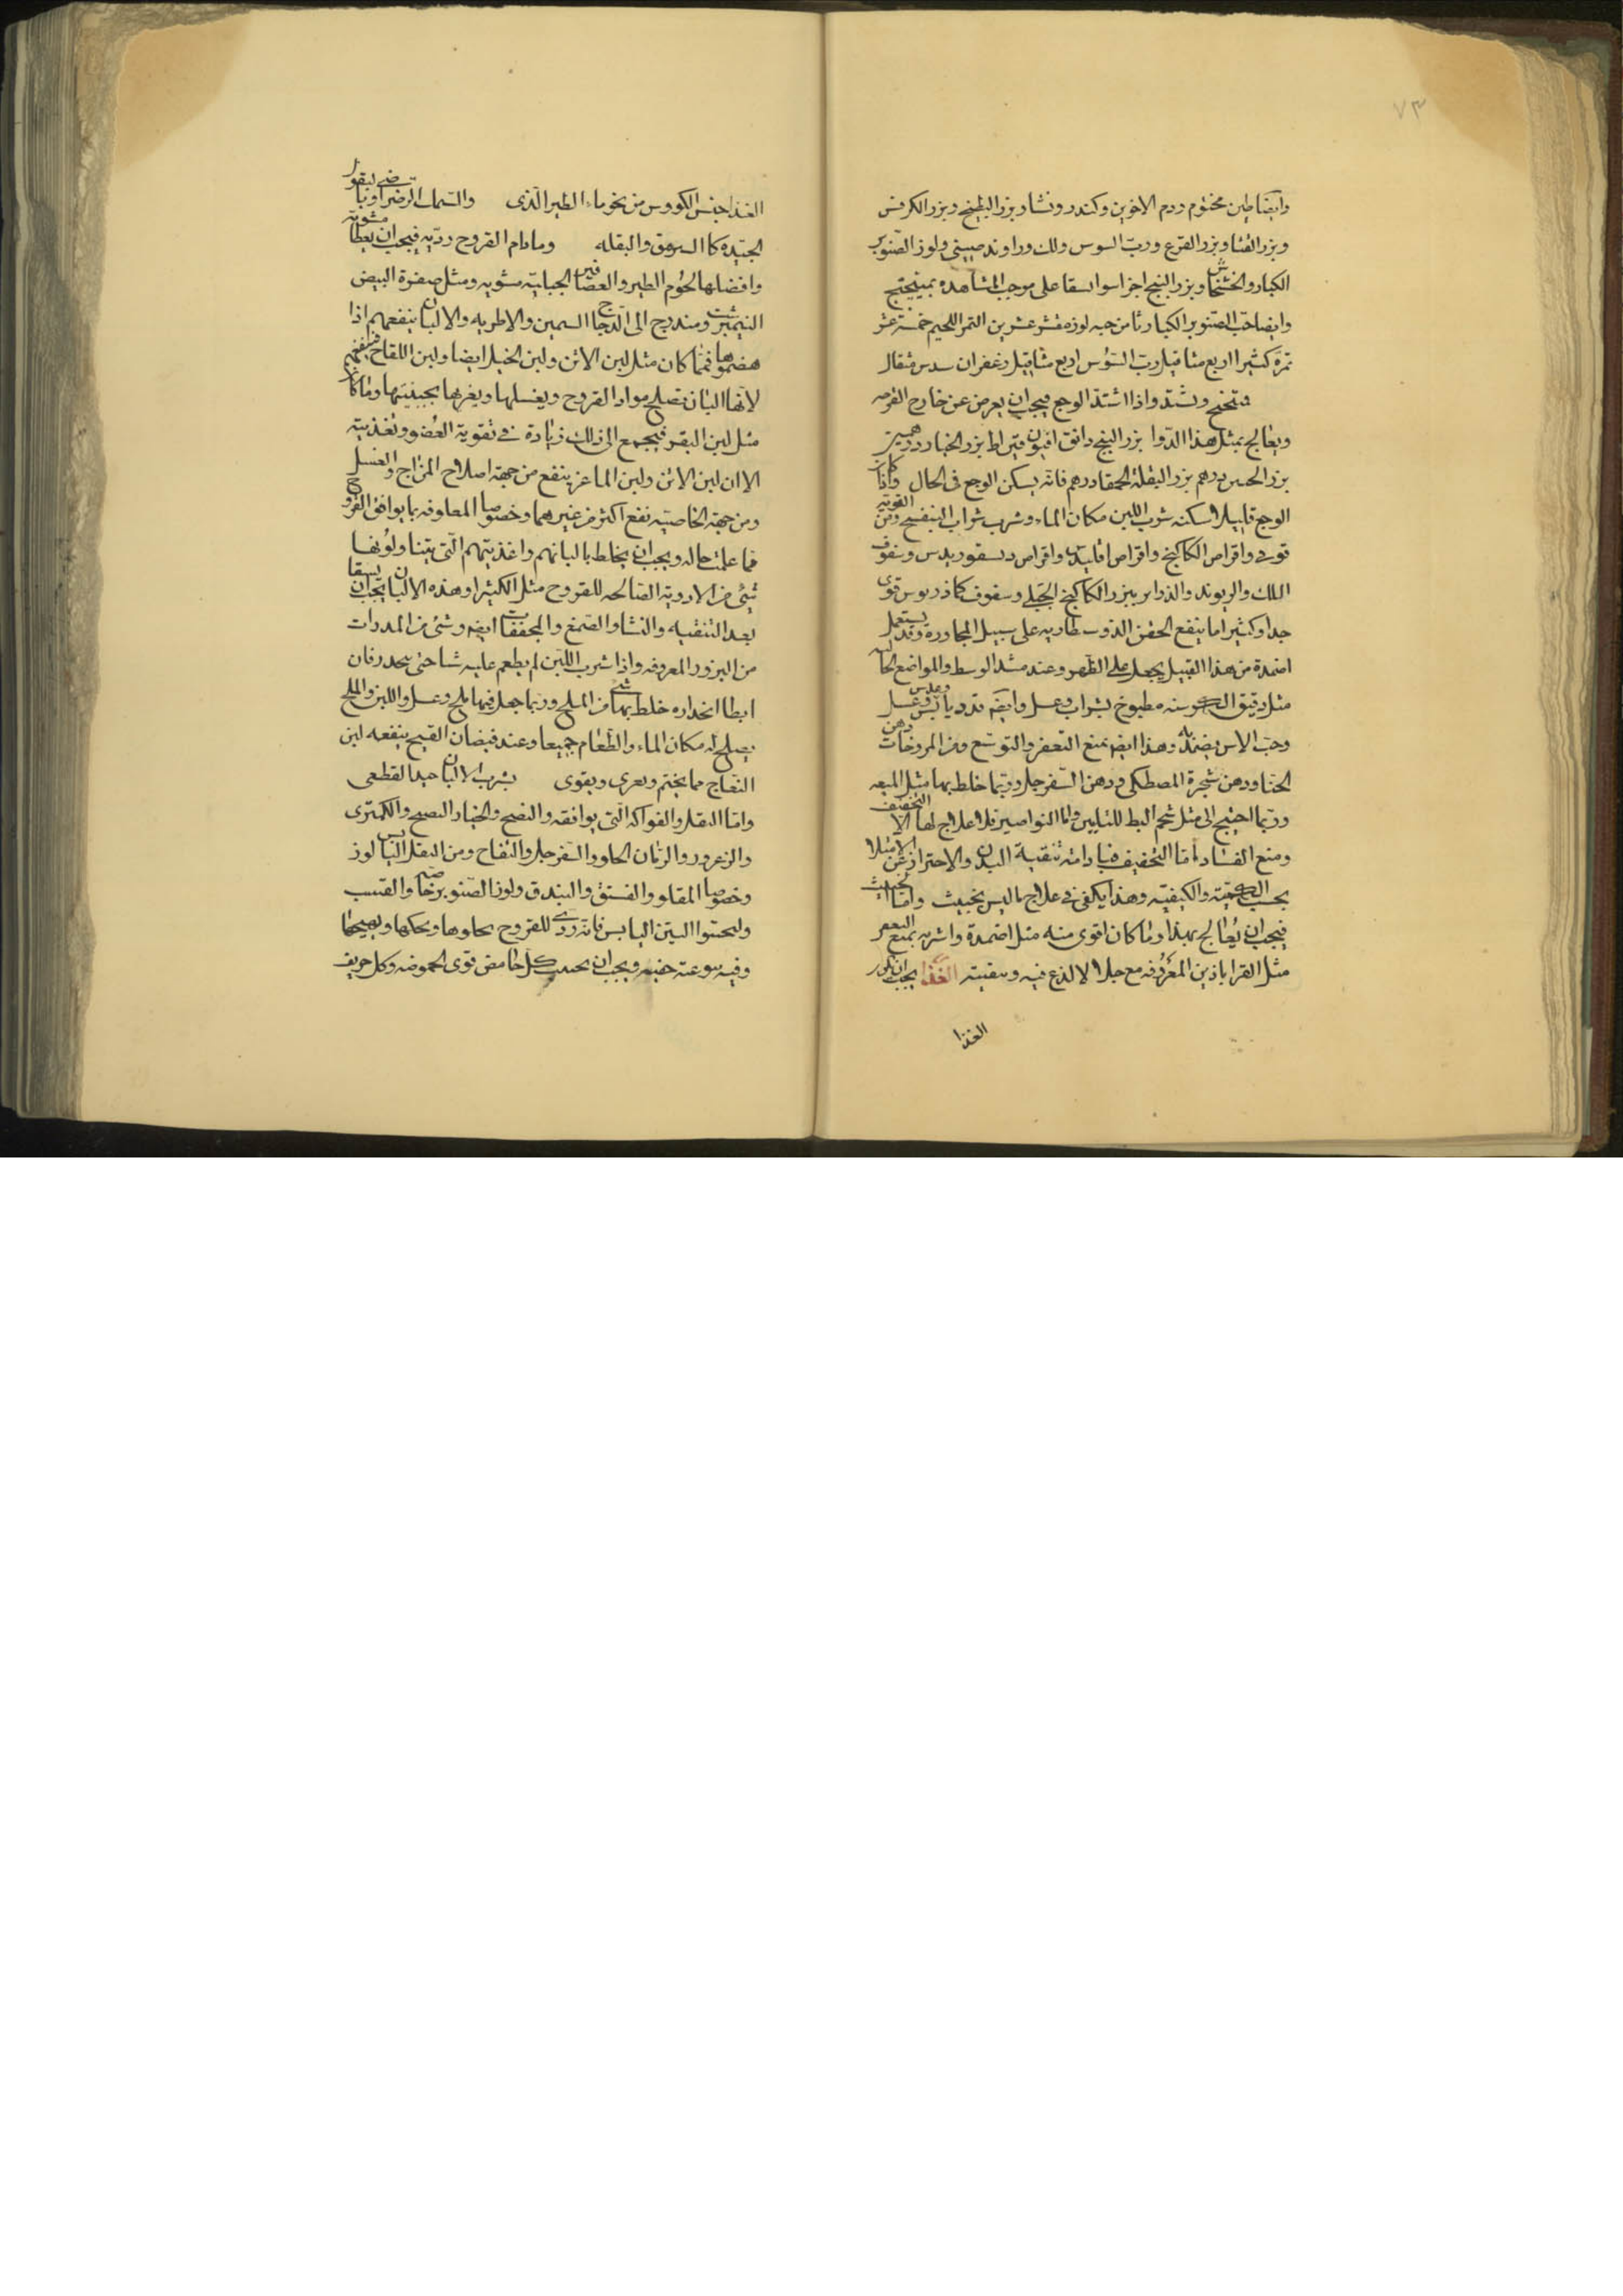 ٧٣
وايضا طين مختوم ودم الاخوين وكندر ونشا وبزر البطيخ وبزر الكرفس
وبزر القثا وبزر القرع ورب السوس ولك وراوند صيني ولوز الصنوبر
الكبار والخشخاش وبزر البنج اجزا سوا يسقا على موجب المشاهدة بميبختج
وايضا حب الصنوبر الكبار ثامن حبه لوزه مقشر عشرين التمر اللحيم خمسة عشر
تمرة كثيرا اربع مثاقيل رب السوس اربع مثاقيل زعفران سدس مثقال
واذا اشتد الوجع فيجب ان يعرض عن خارج القرحه
ويعالج بمثل هذا الدوا بزر البنج دانق افيون قيراط بزر الخيار درهمين
بزر الخس درهم بزر البقلة الحمقا درهم فانه يسكن الوجع في الحال واذا كان
الوجع قليلا اسكنه شرب اللبن مكان الماء وشرب شراب البنفسج ومن القويه
قوفى واقراص الكاكنج واقراص واقراص ديسقوريدس وسفوف
اللك والريوند والذراير ببزر الكاكنج الجبلي وسفوف كماذريوس قوى
جدا وكثيرا ما ينفع الحقن الذوسنطاريه على سبيل المجاورة وقد يستعمل
اضمدة من هذا القبيل يجعل على الظهر وعند مشد الوسط والمواضع الخاليه
مثل دقيق الكرسنه مطبوخ بشراب وعسل وايضا ورد يابس وعدس وعسل
وحب الاس يضمد به وهذا ايضا يمنع التعفن والتوسع ومن المروخات دهن
الحنا ودهن شجرة المصطكى ودهن السفرجل وربما خلط بها مثل الميعه
وربما احتيج الى مثل شحم البط للتليين واما النواصير فلا علاج لها الا التجفيف
ومنع الفساد اما التجفيف فبادامة تنقية البدن والاحتراز عن الامتلا
بحسب الكمية والكيفية وهذا يكفى فى علاج ما ليس بخبيث واما الخبيث
فيجب ان يعالج بهذا وما كان اقوى منه مثل اضمدة واشربه يمنع التعفن
مثل القراباذين المعروفه مع جلا لا لذع فيه وتنقيته الغذا يجب ان يكون
الغذا
الغذا جنس الكيموس من نحو ماء الطير الذى والسماك الرضراضى لبقول
الجيده كالسرمق والبقله وما دام القروح رديه فيجب ان يعطا مشويه
وافضلها لحوم الطير والعصافير الجبليه مشويه ومثل صفرة البيض
النيمبرشت ومتدرج الى الدجاج السمين والاطريه والالبان ينفعهم اذا
هضموها فما كان مثل لبن الاتن ولبن الخيل ايضا ولبن اللقاح فينفعهم
لانها البان تصلح مواد القروح ويغسلها ويغريها بجبنيتها وما كان
مثل لبن البقر فيجمع الى ذلك زيادة في تقوية العضو وتغذيته
الا ان لبن الاتن ولبن الماعز ينفع من جهة اصلاح المزاج والغسل
ومن جهة الخاصيه نفع اكثر من غيرهما وخصوصا المعلوفه بما يوافق القروح
فما علمت حاله ويجب ان يخلط بالبانهم واغذيتهم التى يتناولونها
شئ من الادوية الصالحه للقروح مثل الكثيرا وهذه الالبان يجب ان يسقا
بعد التنقيه والنشا والصمغ والمجففات ايضا وشئ من المدرات
من البزور المعروفه واذا شرب اللبن لم يطعم عليه شيا حتى ينحدر فان
ابطا انحداره خلط بها شئ من الملح وربما جعل فيها ملح وعسل واللبن والملح
يصلح له مكان الماء والطعام جميعا وعند فيضان القيح ينفعه لبن
النعاج مما يختم ويغرى ويقوى يشرب الالبان القطعى
واما النقل والفواكه التى يوافقه والخيار النضيج والكمثرى
والزعرور والرمان الحلو والسفرجل والتفاح ومن النقل اليابس لوز
وخصوصا المقلو والفستق والبندق ولوز الصنوبر خاصه والقسب
وليجتنبوا التين اليابس فانه ردى للقروح يجلوها ويحكها ويهيجها
وفيه يتوعيه خفيه ويجب ان يجتنب كل حامض قوى الحموضه وكل حريف